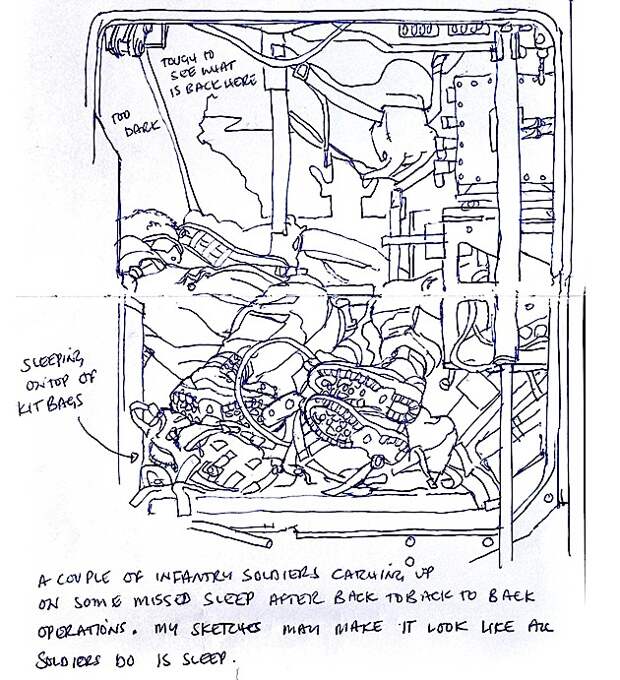 TOUGH TO
SEE WHAT
IS BACK HERE
TOO
DARK
SLEEPING
ON TOP OF
KIT BAGS
A COUPLE OF INFANTRY SOLDIERS CATCHING UP
ON SOME MISSED SLEEP AFTER BACK TO BACK TO BACK
OPERATIONS. MY SKETCHES MAY MAKE IT LOOK LIKE ALL
SOLDIERS DO IS SLEEP.